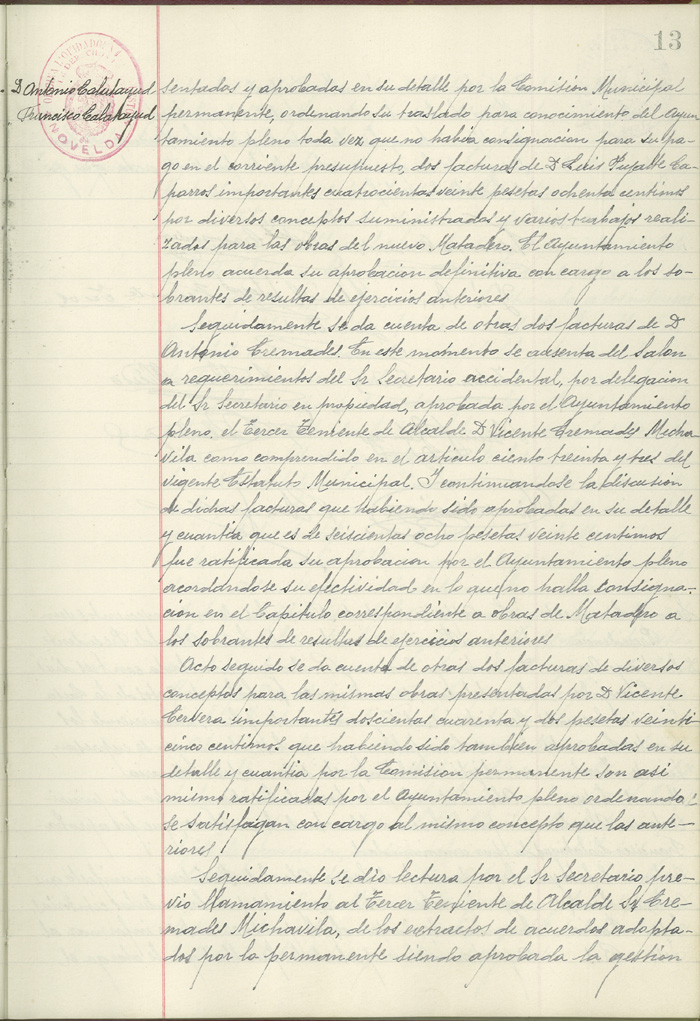 13
D. Antonio Calatayud
Francisco Calatayud
NOVELDA
sentadas y aprobadas en su detalle por la Comision Municipal
permanente, ordenando su traslado para conocimiento del Ayun
tamiento pleno toda vez que no habia consignacion para su pa-
go en el corriente presupuesto, dos facturas de D. Luis Ca-
parros importantes cuatrocientas veinte pesetas ochenta centimos
por diversos conceptos suministrados y varios trabajos reali-
zados para las obras del nuevo Matadero. El Ayuntamiento
pleno acuerda su aprobacion definitiva con cargo a los so-
brantes de resultas de ejercicios anteriores
Seguidamente se da cuenta de otras dos facturas de D
Antonio Cremades. En este momento se ausenta del Salon
a requerimientos del Sr Secretario accidental, por delegacion
del Sr Secretario en propiedad, aprobada por el Ayuntamiento
pleno, el Tercer Teniente de Alcalde D Vicente Cremades Micha-
vila como comprendido en el articulo ciento treinta y tres del
vigente Estatuto Municipal. Y continuandose la discusion
de dichas facturas que habiendo sido aprobadas en su detalle
y cuantia que es de seiscientas ocho pesetas veinte centimos
fue ratificada su aprobacion por el Ayuntamiento pleno
acordandose su efectividad en lo que no halla consigna-
cion en el Capitulo correspondiente a obras de Matadero a
los sobrantes de resultas de ejercicios anteriores
Acto seguido se da cuenta de otras dos facturas de diversos
conceptos para las mismas obras presentadas por D Vicente
Cervera importantes doscientas cuarenta y dos pesetas veinti
cinco centimos que habiendo sido tambien aprobadas en su
detalle y cuantia por la Comision permanente son asi
mismo ratificadas por el Ayuntamiento pleno ordenando
se satisfagan con cargo al mismo concepto que las ante-
riores
Seguidamente se dio lectura por el Sr Secretario pre-
vio llamamiento al Tercer Teniente de Alcalde Sr Cre-
mades Michavila, de los extractos de acuerdos adopta-
dos por la permanente siendo aprobada la gestion